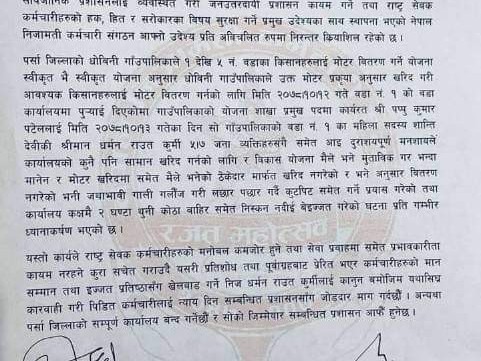 सार्वजनिक प्रशासनलाई व्यवस्थित गरी जनउत्तरदायी प्रशासन कायम गर्ने तथा राष्ट्र सेवक
कर्मचारीहरुको हक, हित र सरोकारका विषय सुरक्षा गर्ने प्रमुख उद्देश्यका साथ स्थापना भएको नेपाल
निजामती कर्मचारी संगठन आफ्नो उदेश्य प्रति अविचलित रुपमा निरन्तर क्रियाशिल रहेको छ ।
पर्सा जिल्लाको धोबिनी गाँउपालिकाले १ देखि ५ नं. वडाका किसानहरुलाई मोटर वितरण गर्ने योजना
स्वीकृत भै स्वीकृत योजना अनुसार धोबिनी गाउँपालिकाले उक्त मोटर प्रकृया अनुसार खरिद गरी
आवश्यक किसानहरुलाई मोटर वितरण गर्नको लागि मिति २०७८।१०।१२ गते वडा नं. १ को वडा
कार्यालयमा पुर्‍याई दिएकोमा गाउँपालिकाको योजना शाखा प्रमुख पदमा कार्यरत श्री पप्पु कुमार
पटेललाई मिति २०७८।१०।१३ गतेका दिन सो गाँउपालिकाको वडा नं. १ का महिला सदस्य शान्ति
देवीकी श्रीमान धर्मन राउत कुर्मी ५।७ जना व्यक्तिहरुसंगै समेत आइ दुराशयपूर्ण मनशायले
कार्यालयको कुनै पनि सामान खरिद गर्नको लागि र विकास योजना मैले भने मुताविक गर भन्दा
मानेन र मोटर खरिदमा समेत मैले भनेको ठेकेदार मार्फत खरिद नगरेको र भने अनुसार बितरण
नगरेको भनी जथाभावी गाली गलौंज गरी लछार पछार गर्दै कुटपिट समेत गर्ने प्रयास गरेको तथा
कार्यालय कक्षमै २ घण्टा थुनी कोठा बाहिर समेत निस्कन नदीई बेइज्जत गरेको घटना प्रति गम्भीर
ध्यानाकर्षण भएको छ ।
रजत महोत्सव
यस्तो कार्यले राष्ट्र सेवक कर्मचारीहरुको मनोबल कमजोर हुने तथा सेवा प्रवाहमा समेत प्रभावकारीता
कायम नरहने कुरा सचेत गराउदै यसरी प्रतिशोध तथा पूर्वाग्रहबाट प्रेरित भएर कर्मचारीहरुको मान
सम्मान तथा इज्जत प्रतिष्ठासँग खेलवाड गर्ने निज धर्मन राउत कुर्मीलाई कानुन बमोजिम यथासिघ्र
कारवाही गरी पिडित कर्मचारीलाई न्याय दिन सम्बन्धित प्रशासनसाग जोडदार माग गर्दछौं । अन्यथा
पर्सा जिल्लाको सम्पूर्ण कार्यालय बन्द गर्नेछौं र सोको जिम्मेवार सम्बन्धित प्रशासन आफै हुनेछ ।